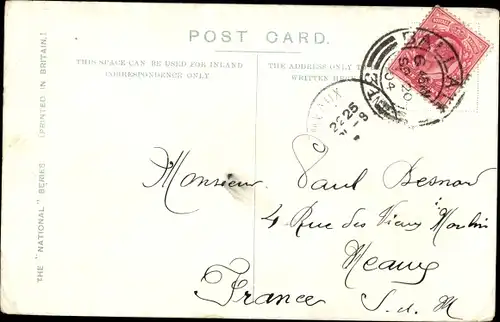 POST CARD.
THIS SPACE CAN BE USED FOR INLAND
CORRESPONDENCE ONLY
THE ADDRESS ONLY
WRITTEN
THE "NATIONAL" SERIES (PRINTED IN BRITAIN.)
Monsieur Paul Besnard
4 Rue des Vieux Moulin
Meaux
France S. & M